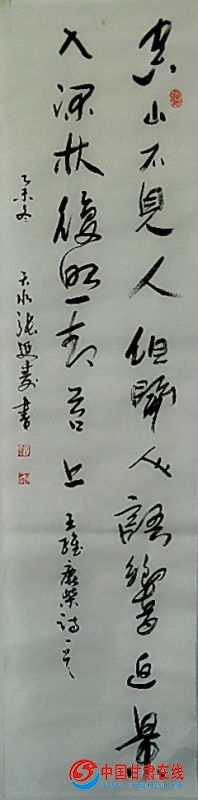 空山不見人但聞人語響返景
入深林復照青苔上 王維鹿柴詩一首
乙未冬 天水張書
中国甘肃在线